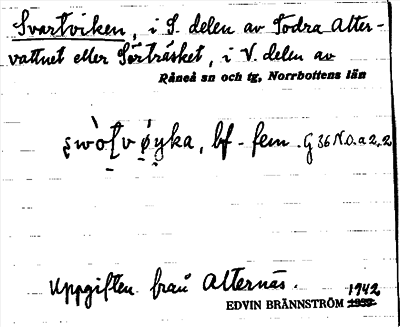 Svartviken, i S. delen av Södra Alter-
vattnet eller Sörträsket, i V. delen av
Råneå sn och tg, Norrbottens län
bf. fem. G 36 N.O. a 2,2
Uppgiften från Alternäs.
1942
EDVIN BRÄNNSTRÖM 1939